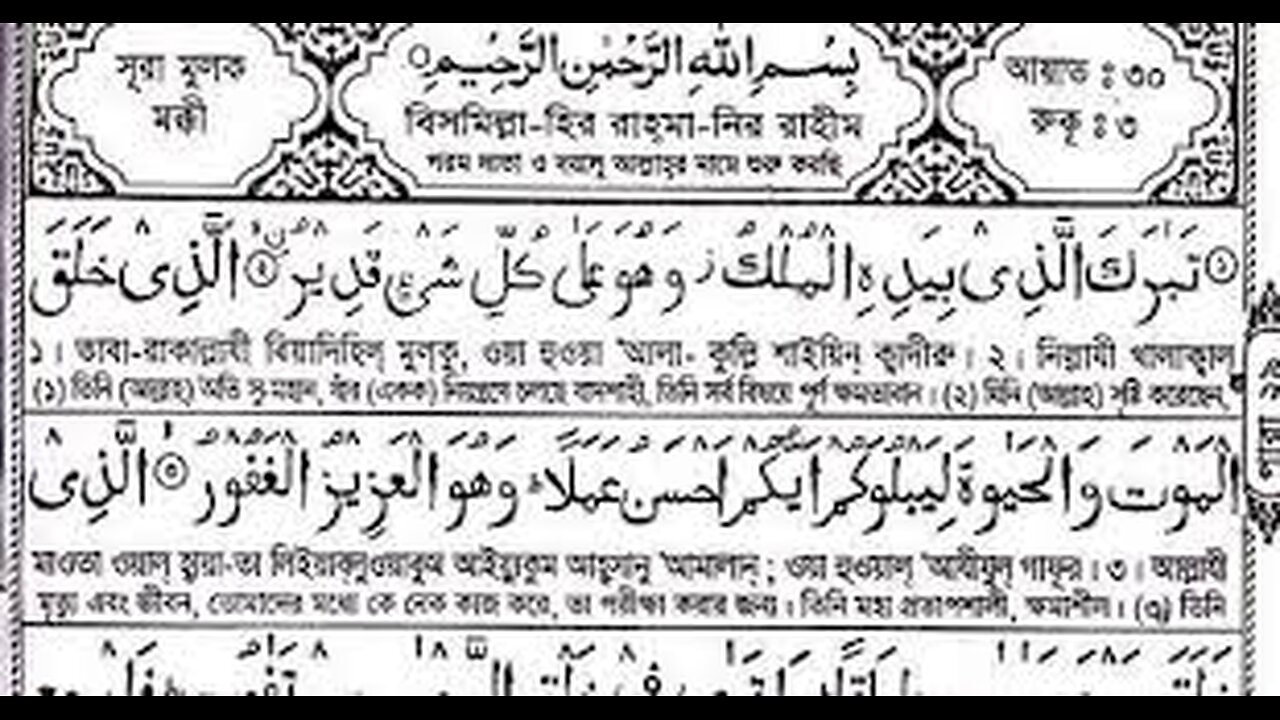 সূরা মুলক
মক্কী
بِسْمِ اللهِ الرَّحْمٰنِ الرَّحِيْمِ
বিসমিল্লা-হির রাহ্‌মা-নির রাহীম
পরম দাতা ও দয়ালু আল্লাহর নামে শুরু করছি
আয়াত : ৩০
রুকূ : ৩
تَبٰرَكَ الَّذِىْ بِيَدِهِ الْمُلْكُ ز وَهُوَ عَلٰى كُلِّ شَىْءٍ قَدِيْرُ ۨ الَّذِىْ خَلَقَ
১। তাবা-রাকাল্লাযী বিয়াদিহিল্ মুল্‌কু, ওয়া হুওয়া 'আলা- কুল্লি শাইয়িন্ ক্বাদীরু। ২। নিল্লাযী খালাক্বাল্
(১) তিনি (আল্লাহ) অতি সু-মহান, যাঁর (একক) নিয়ন্ত্রণে চলছে বাদশাহী, তিনি সর্ব বিষয়ে পূর্ণ ক্ষমতাবান। (২) যিনি (আল্লাহ) সৃষ্টি করেছেন,
الْمَوْتَ وَالْحَيٰوةَ لِيَبْلُوَكُمْ اَيُّكُمْ اَحْسَنُ عَمَلًا ط وَهُوَ الْعَزِيْزُ الْغَفُوْرُ ۝ الَّذِىْ
মাওতা ওয়াল্ হ়ায়া-তা লিইয়াব্‌লুওয়াকুম আইয়্যুকুম আহ়্‌সানু 'আমালান্ ; ওয়া হুওয়াল্ 'আযীযুল্ গাফূর। ৩। আল্লাযী
মৃত্যু এবং জীবন, তোমাদের মধ্যে কে নেক কাজ করে, তা পরীক্ষা করার জন্য। তিনি মহা প্রতাপশালী, ক্ষমাশীল। (৩) তিনি
পারা ২৯